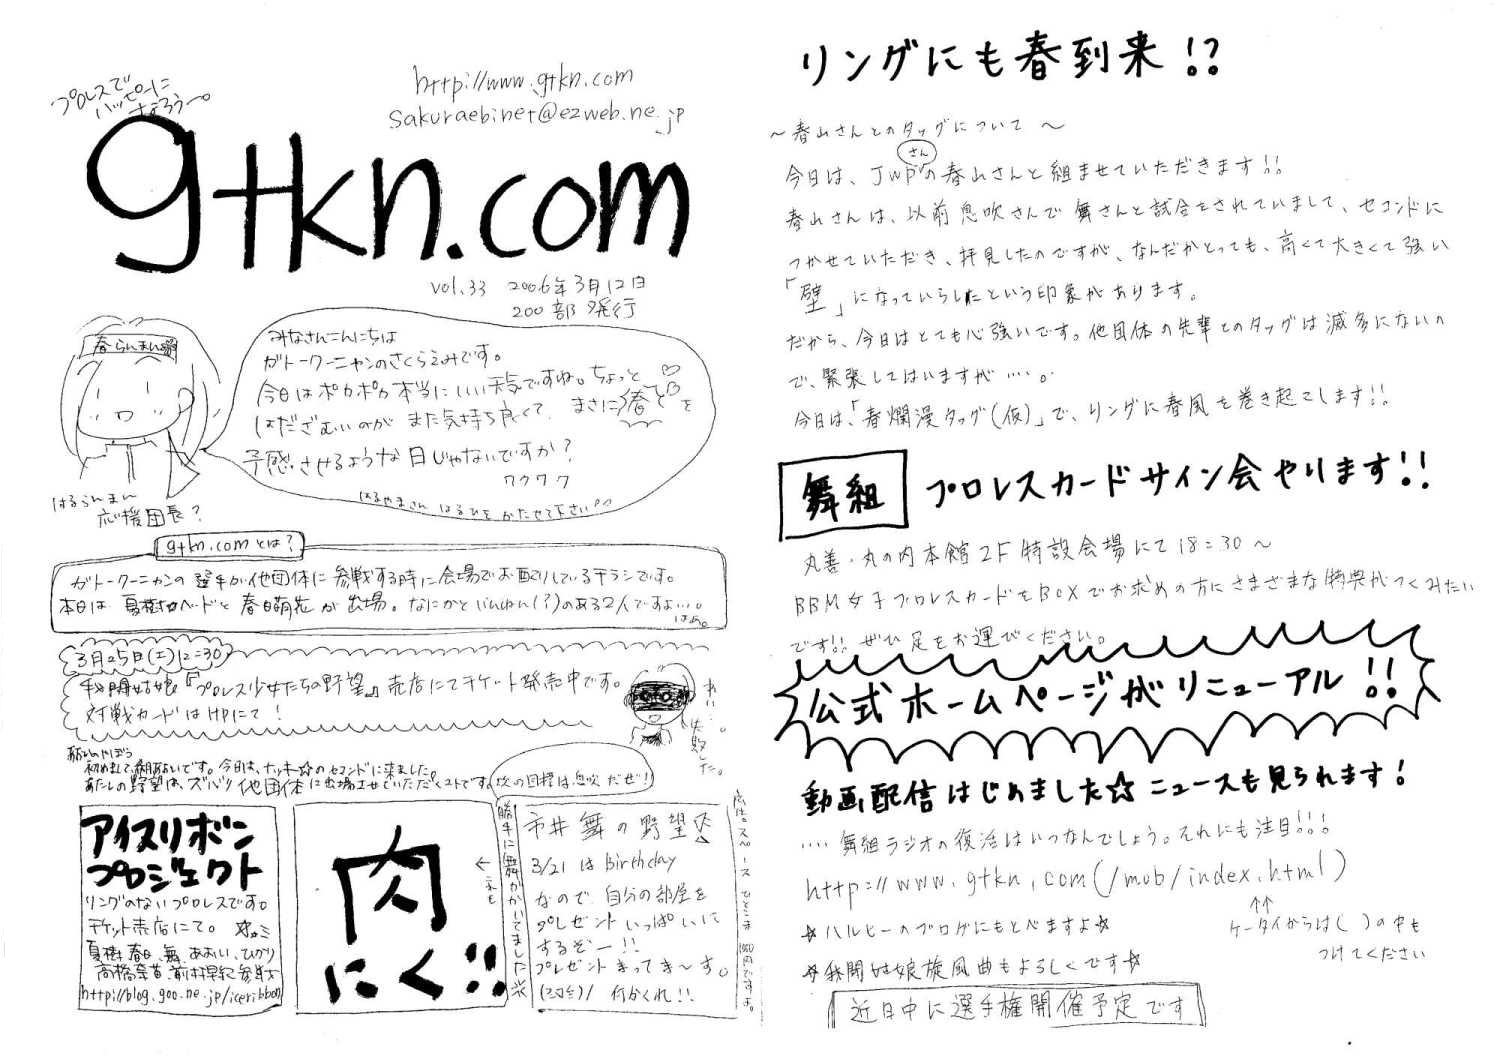 プロレスで
ハッピーに
なろう〜。
http://www.gtkn.com
sakuraebinet@ezweb.ne.jp
gtkn.com
vol.33 2006年3月12日
200部発行
春らんまん
みなさんこんにちは
ガトークーニャンのさくらえみです。
今日はポカポカ本当にいい天気ですね。ちょっと
はだざむいのが また気持ち良くて、まさに春を
予感させるような日じゃないですか?
ワクワク
はるやまさん はるひを かたせて下さい
はるらんまん
応援団長?
gtkn.comとは?
ガトークーニャンの選手が他団体に参戦する時に会場でお配りしているチラシです。
本日は、夏樹☆ヘッドと春日萌花が出場。なにかといんねん(?)のある2人ですよ…。
3月25日(土)12:30
我闘姑娘『プロレス少女たちの野望』売店にてチケット発売中です。
対戦カードはHPにて!
失敗した。
あおいのやぼう
初めまして、組あおいです。今日は、ナッキー☆のセコンドに来ました。
あたしの野望は、ズバリ他団体に出場させていただくコトです。
次の目標は息吹だぜ!
アイスリボン
プロジェクト
リングのないプロレスです。
チケット売店にて。
夏樹、春日、舞、あおい、ひかり
高橋奈苗、前村早紀参戦
http://blog.goo.ne.jp/iceribbon
肉
にく!!
勝手に舞がかいてました
←これも
市井舞の野望
3/21 は Birthday
なので、自分の部屋を
プレゼントいっぱいに
するぞー!!
プレゼントまってま〜す。
何かくれ!!
広告スペース ひとこま
リングにも春到来!?
〜春山さんとのタッグについて〜
今日は、JWPさんの春山さんと組ませていただきます!!
春山さんは、以前息吹さんで舞さんと試合をされていまして、セコンドに
つかせていただき、拝見したのですが、なんだかとっても、高くて大きくて強い
「壁」になっていらしたという印象があります。
だから、今日はとても心強いです。他団体の先輩とのタッグは滅多にないの
で、緊張してはいますが……。
今日は、「春爛漫タッグ(仮)」で、リングに春風を巻き起こします!!
舞組 プロレスカードサイン会やります!!
丸善・丸の内本館2F特設会場にて18:30〜
BBM女子プロレスカードをBOXでお求めの方にさまざまな特典がつくみたい
です!! ぜひ足をお運びください。
公式ホームページがリニューアル!!
動画配信はじめました☆ニュースも見られます!
‥‥舞組ラジオの復活はいつなんでしょう。それにも注目!!!
http://www.gtkn.com(/mob/index.html)
↑↑
ケータイからは( )の中も
つけてください
☆ハルヒーのブログにもとべますよ☆
☆我闘姑娘旋風曲もよろしくです☆
近日中に選手権開催予定です